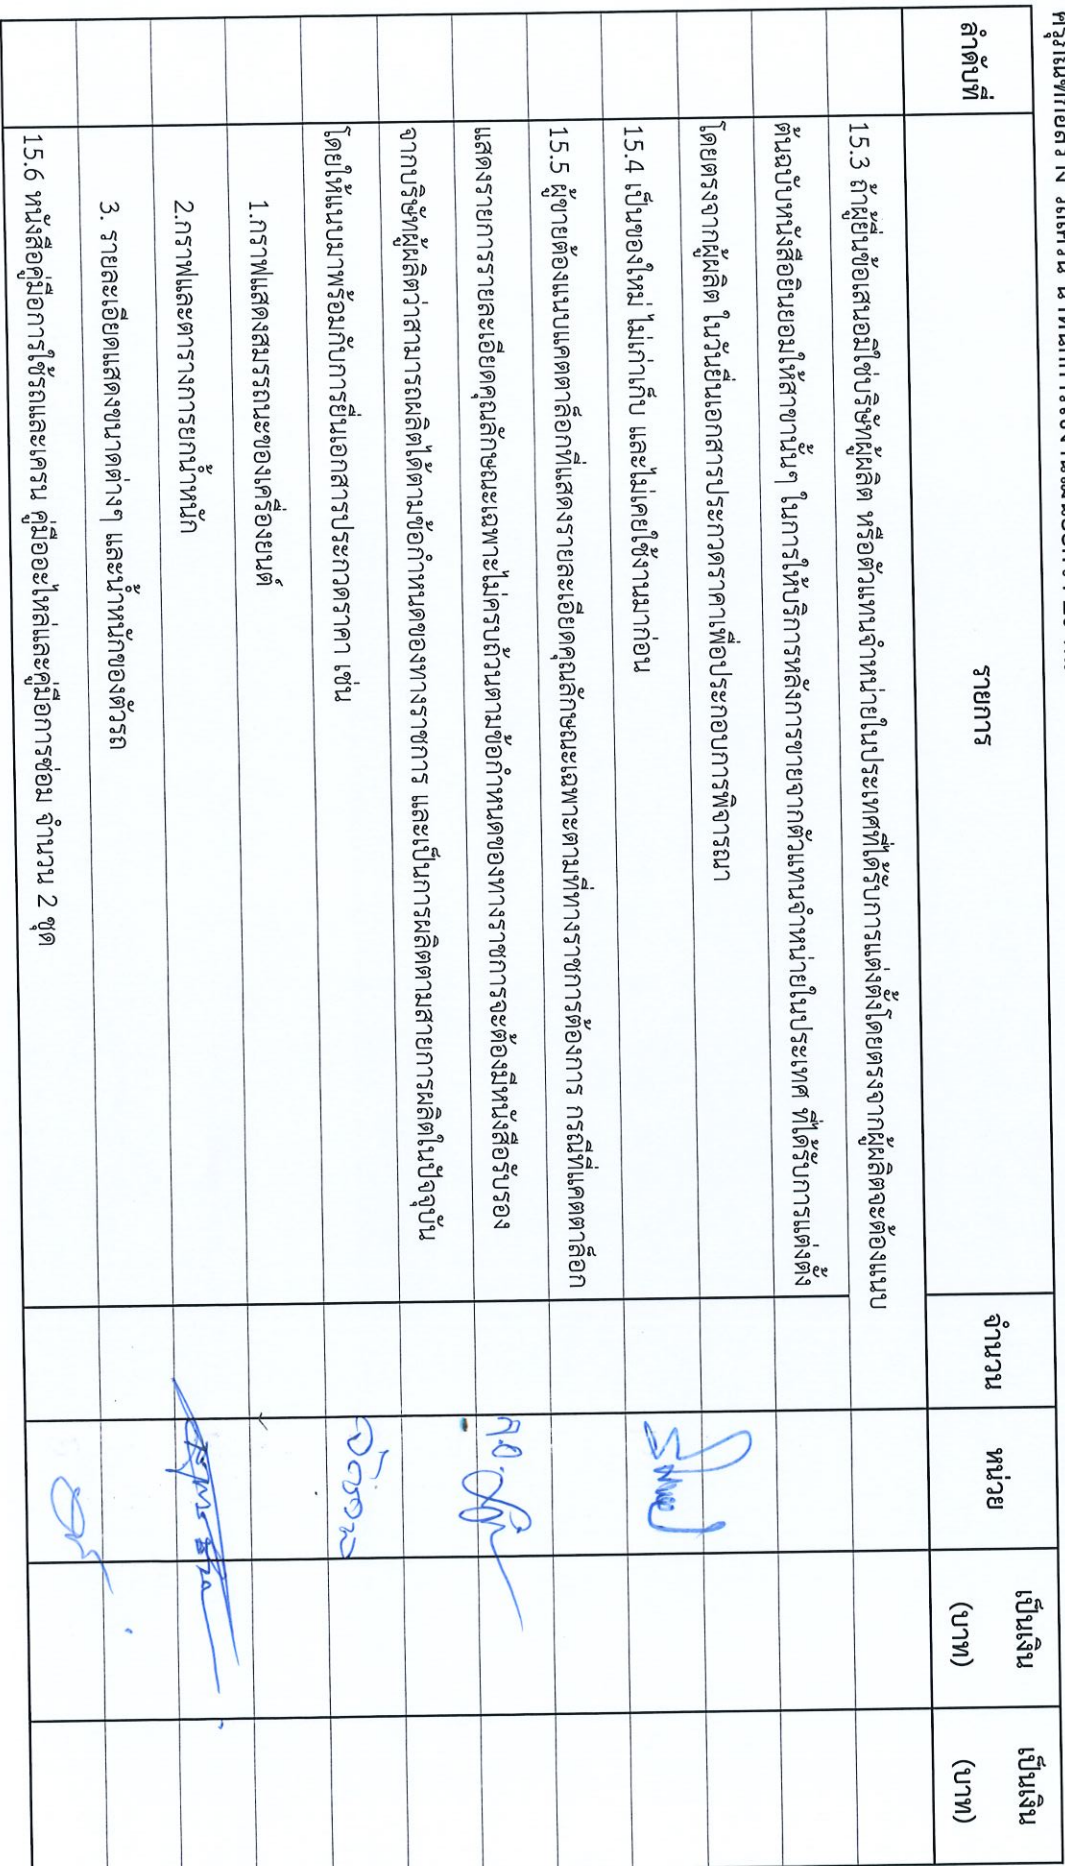 ลำดับที่ รายการ จำนวน หน่วย เป็นเงิน (บาท) เป็นเงิน (บาท)
15.3 ถ้าผู้ยื่นข้อเสนอมิใช่บริษัทผู้ผลิต หรือตัวแทนจำหน่ายในประเทศที่ได้รับการแต่งตั้งโดยตรงจากผู้ผลิตจะต้องแนบ
ต้นฉบับหนังสือยินยอมให้สาขานั้นๆ ในการให้บริการหลังการขายจากตัวแทนจำหน่ายในประเทศ ที่ได้รับการแต่งตั้ง
โดยตรงจากผู้ผลิต ในวันยื่นเอกสารประกวดราคาเพื่อประกอบการพิจารณา
15.4 เป็นของใหม่ ไม่เก่าเก็บ และไม่เคยใช้งานมาก่อน
15.5 ผู้ขายต้องแนบแคตตาล็อกที่แสดงรายละเอียดคุณลักษณะเฉพาะตามที่ทางราชการต้องการ กรณีที่แคตตาล็อก
แสดงรายการรายละเอียดคุณลักษณะเฉพาะไม่ครบถ้วนตามข้อกำหนดของทางราชการจะต้องมีหนังสือรับรอง
จากบริษัทผู้ผลิตว่าสามารถผลิตได้ตามข้อกำหนดของทางราชการ และเป็นการผลิตตามสายการผลิตในปัจจุบัน
โดยให้แนบมาพร้อมกับการยื่นเอกสารประกวดราคา เช่น
1.กราฟแสดงสมรรถนะของเครื่องยนต์
2.กราฟและตารางการยกน้ำหนัก
3. รายละเอียดแสดงขนาดต่างๆ และน้ำหนักของตัวรถ
15.6 หนังสือคู่มือการใช้รถและเครน คู่มืออะไหล่และคู่มือการซ่อม จำนวน 2 ชุด